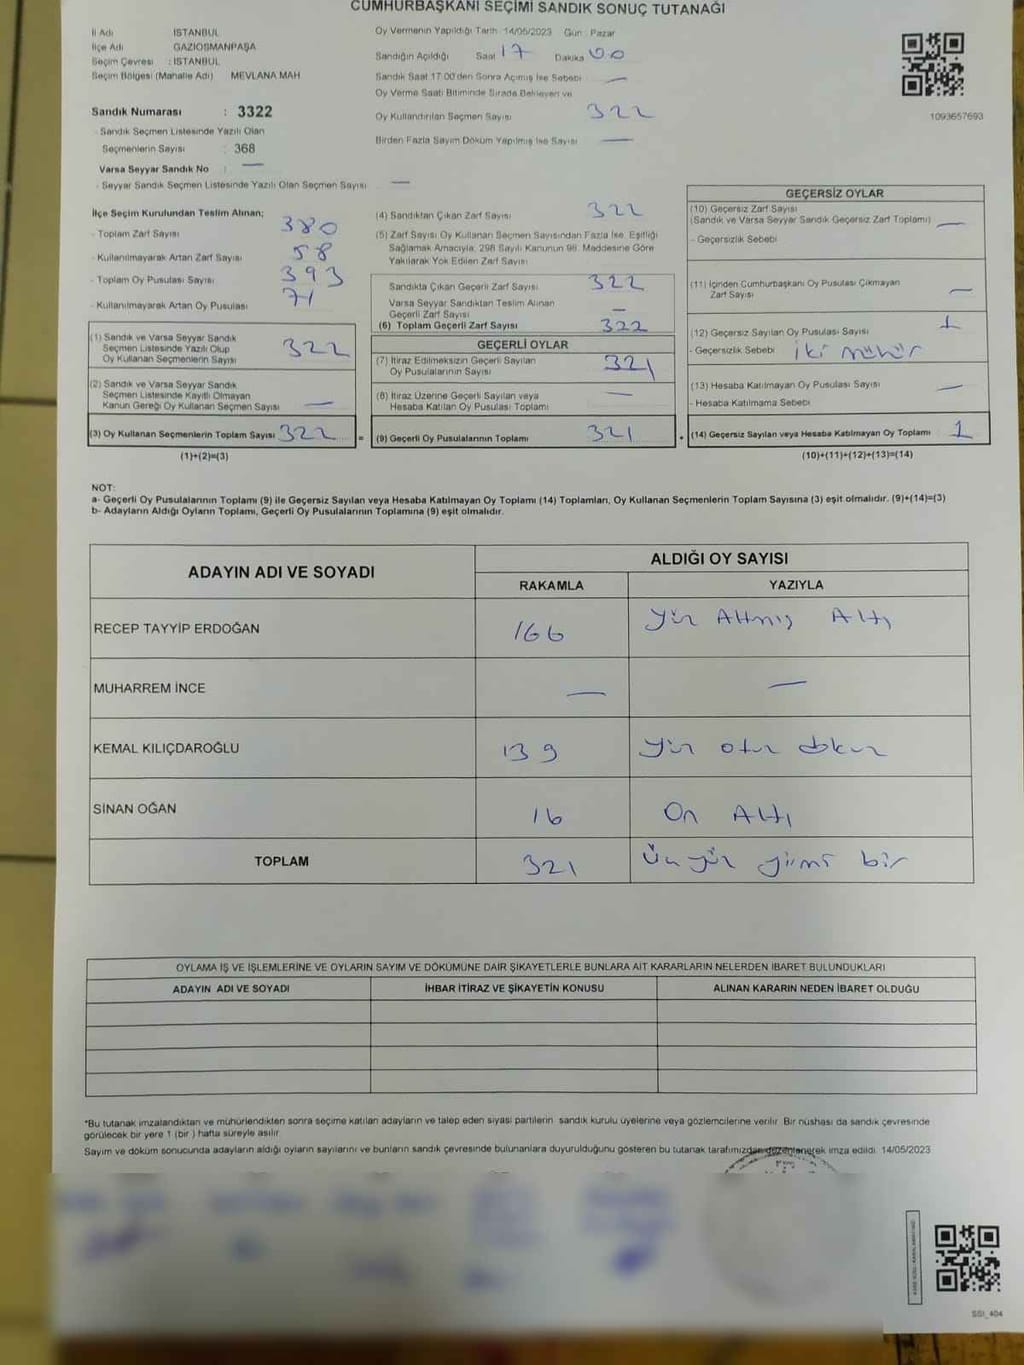 CUMHURBAŞKANI SEÇİMİ SANDIK SONUÇ TUTANAĞI
İl Adı İSTANBUL
İlçe Adı GAZİOSMANPAŞA
Seçim Çevresi : İSTANBUL
Seçim Bölgesi (Mahalle Adı) MEVLANA MAH
Sandık Numarası : 3322
Sandık Seçmen Listesinde Yazılı Olan
Seçmenlerin Sayısı : 368
Varsa Seyyar Sandık No : —
- Seyyar Sandık Seçmen Listesinde Yazılı Olan Seçmen Sayısı —
Oy Vermenin Yapıldığı Tarih 14/05/2023 Gün Pazar
Sandığın Açıldığı Saat 17 Dakika 00
Sandık Saat 17.00'den Sonra Açılmış İse Sebebi —
Oy Verme Saati Bitiminde Sırada Bekleyen ve
Oy Kullandırılan Seçmen Sayısı 322
Birden Fazla Sayım Döküm Yapılmış İse Sayısı —
1093657693
İlçe Seçim Kurulundan Teslim Alınan;
- Toplam Zarf Sayısı 380
- Kullanılmayarak Artan Zarf Sayısı 58
- Toplam Oy Pusulası Sayısı 393
- Kullanılmayarak Artan Oy Pusulası 71
(1) Sandık ve Varsa Seyyar Sandık
Seçmen Listesinde Yazılı Olup
Oy Kullanan Seçmenlerin Sayısı 322
(2) Sandık ve Varsa Seyyar Sandık
Seçmen Listesinde Kayıtlı Olmayan
Kanun Gereği Oy Kullanan Seçmen Sayısı —
(3) Oy Kullanan Seçmenlerin Toplam Sayısı 322
(1)+(2)=(3)
(4) Sandıktan Çıkan Zarf Sayısı 322
(5) Zarf Sayısı Oy Kullanan Seçmen Sayısından Fazla İse, Eşitliği
Sağlamak Amacıyla, 298 Sayılı Kanunun 98. Maddesine Göre
Yakılarak Yok Edilen Zarf Sayısı
Sandıkta Çıkan Geçerli Zarf Sayısı 322
Varsa Seyyar Sandıktan Teslim Alınan
Geçerli Zarf Sayısı —
(6) Toplam Geçerli Zarf Sayısı 322
GEÇERLİ OYLAR
(7) İtiraz Edilmeksizin Geçerli Sayılan
Oy Pusulalarının Sayısı 321
(8) İtiraz Üzerine Geçerli Sayılan veya
Hesaba Katılan Oy Pusulası Toplamı —
= (9) Geçerli Oy Pusulalarının Toplamı 321
GEÇERSİZ OYLAR
(10) Geçersiz Zarf Sayısı
(Sandık ve Varsa Seyyar Sandık Geçersiz Zarf Toplamı) —
- Geçersizlik Sebebi
(11) İçinden Cumhurbaşkanı Oy Pusulası Çıkmayan
Zarf Sayısı —
(12) Geçersiz Sayılan Oy Pusulası Sayısı 1
- Geçersizlik Sebebi iki mühür
(13) Hesaba Katılmayan Oy Pusulası Sayısı —
- Hesaba Katılmama Sebebi
+ (14) Geçersiz Sayılan veya Hesaba Katılmayan Oy Toplamı 1
(10)+(11)+(12)+(13)=(14)
NOT:
a- Geçerli Oy Pusulalarının Toplamı (9) ile Geçersiz Sayılan veya Hesaba Katılmayan Oy Toplamı (14) Toplamları, Oy Kullanan Seçmenlerin Toplam Sayısına (3) eşit olmalıdır. (9)+(14)=(3)
b- Adayların Aldığı Oyların Toplamı, Geçerli Oy Pusulalarının Toplamına (9) eşit olmalıdır.
ADAYIN ADI VE SOYADI
ALDIĞI OY SAYISI
RAKAMLA YAZIYLA
RECEP TAYYİP ERDOĞAN 166 Yüz Altmış Altı
MUHARREM İNCE — —
KEMAL KILIÇDAROĞLU 139 Yüz otuz dokuz
SİNAN OĞAN 16 On Altı
TOPLAM 321 Üç yüz yirmi bir
OYLAMA İŞ VE İŞLEMLERİNE VE OYLARIN SAYIM VE DÖKÜMÜNE DAİR ŞİKAYETLERLE BUNLARA AİT KARARLARIN NELERDEN İBARET BULUNDUKLARI
ADAYIN ADI VE SOYADI İHBAR İTİRAZ VE ŞİKAYETİN KONUSU ALINAN KARARIN NEDEN İBARET OLDUĞU
*Bu tutanak imzalandıktan ve mühürlendikten sonra seçime katılan adayların ve talep eden siyasi partilerin sandık kurulu üyelerine veya gözlemcilerine verilir. Bir nüshası da sandık çevresinde
görülecek bir yere 1 (bir) hafta süreyle asılır.
Sayım ve döküm sonucunda adayların aldığı oyların sayılarını ve bunların sandık çevresinde bulunanlara duyurulduğunu gösteren bu tutanak tarafımızdan düzenlenerek imza edildi. 14/05/2023
SSI_404